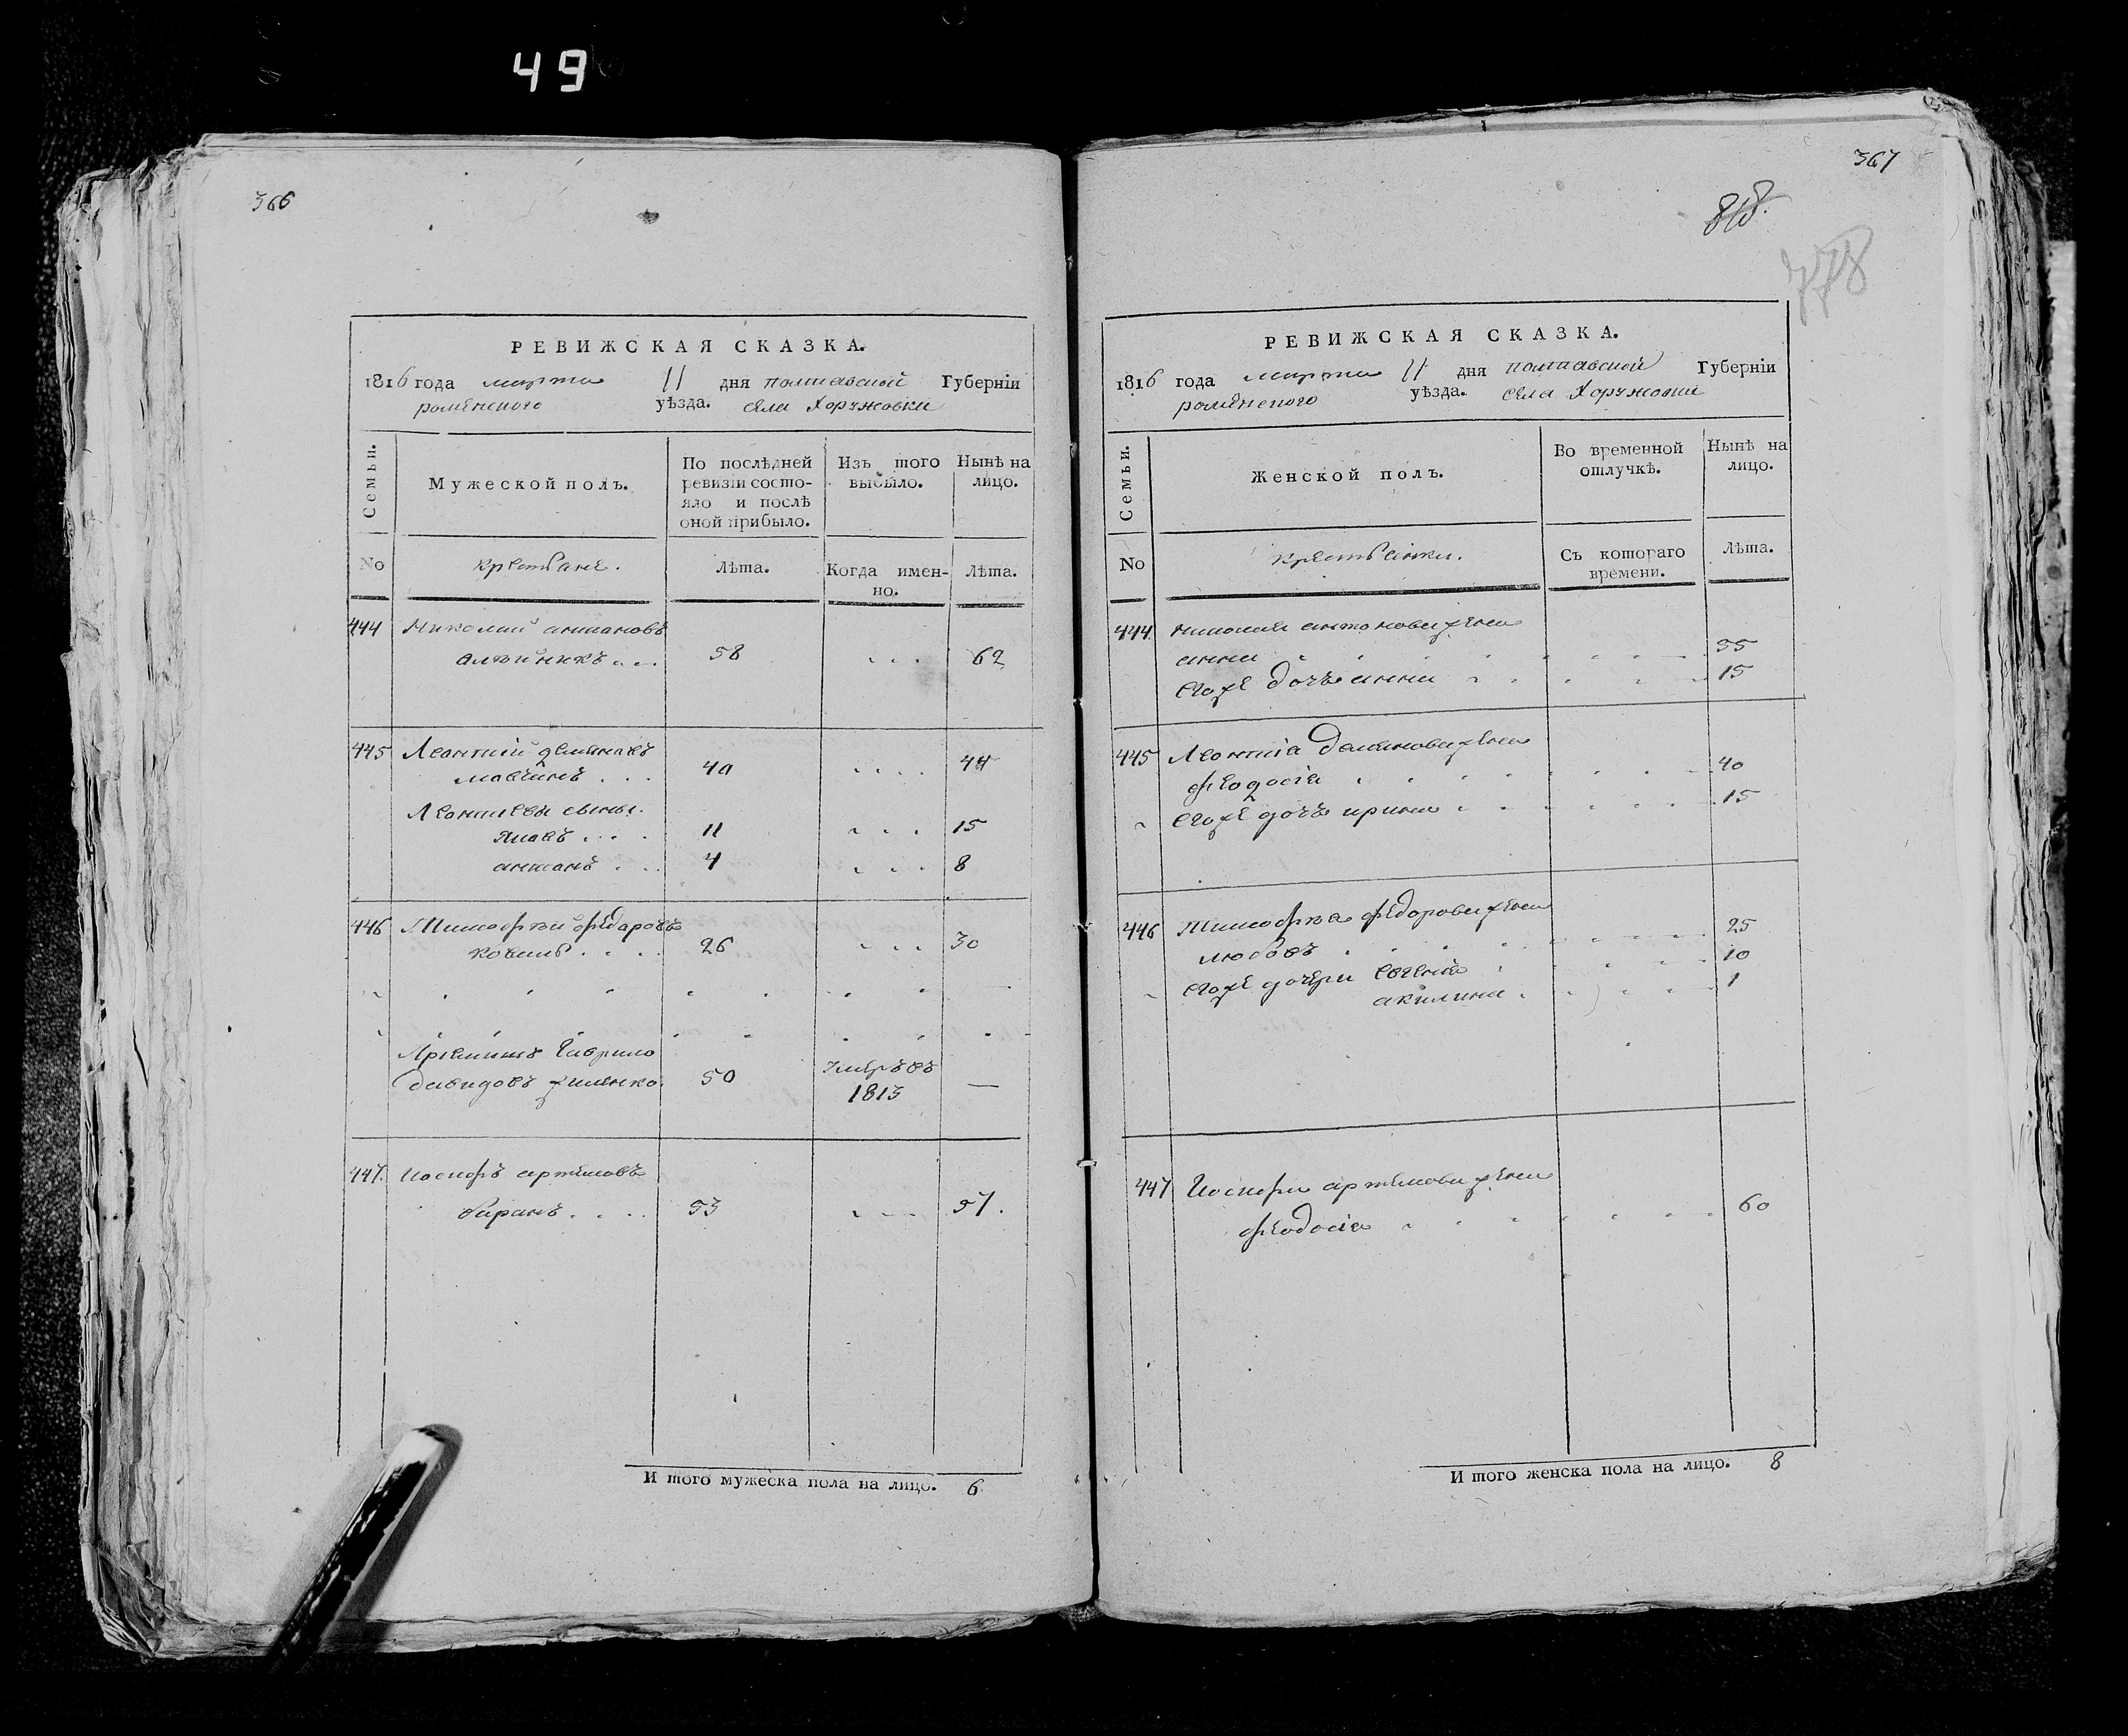 49
366
РЕВИЖСКАЯ СКАЗКА.
1816 года марта 11 дня полтавской Губерніи
роменского уѣзда. села Хоружовки
Семьи.
Мужеской полъ.
По послѣдней ревизіи состо-
яло и послѣ
оной прибыло.
Изъ того
выбыло.
Нынѣ на
лицо.
No
крестьяне.
Лѣта.
Когда имен-
но.
Лѣта.
444 Николай антоновъ
58 62
445 Леонтий деменовъ
40 44
Леонтиевы сыны.
Яковъ 11 15
антонъ 4 8
446 Тимофѣй федоровъ
26 30
Гаврило
давидовъ 50 1813 —
447. Иосифъ артемовъ
баранъ 53 57.
И того мужеска пола на лицо. 6
367
818.
778
РЕВИЖСКАЯ СКАЗКА.
1816 года марта 11 дня полтавской Губерніи
роменского уѣзда. села Хоружовки
Семьи.
Женской полъ.
Во временной
отлучкѣ.
Нынѣ на
лицо.
No
крестьянки.
Съ котораго
времени.
Лѣта.
444. николая антонова жена
анна 55
егоже дочь анна 15
445 Леонтіа деменова жена
феодосіа 40
егоже дочь ирина 15
446 Тимофѣа федорова жена
любовъ 25
егоже дочери евгеніа 10
акилина 1
447 Иосифа артемова жена
феодосіа 60
И того женска пола на лицо. 8